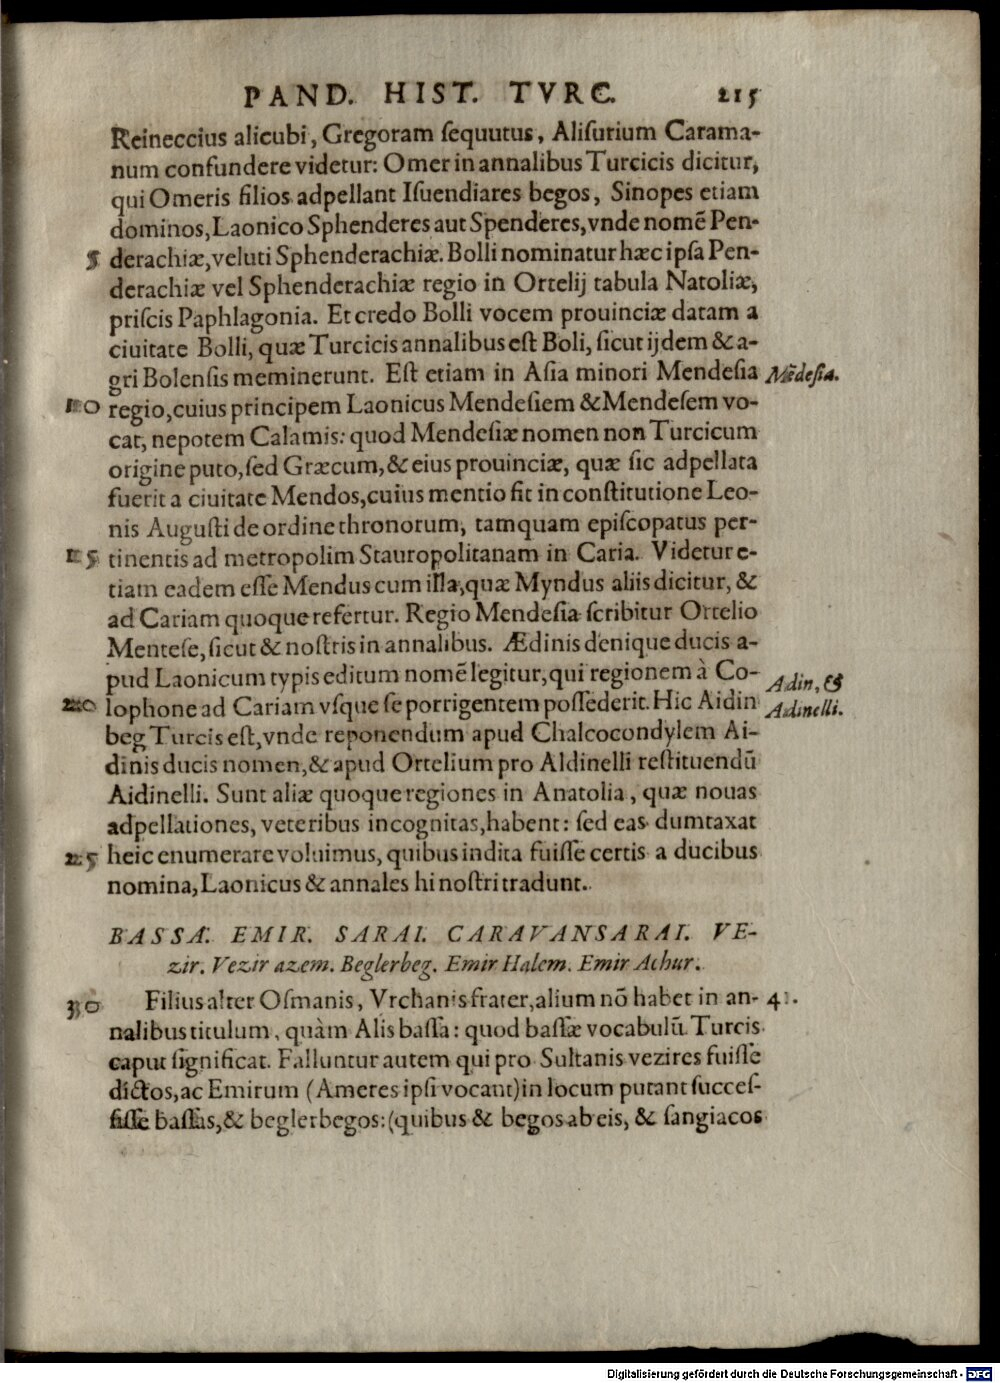 PAND. HIST. TVRC. 215
Reineccius alicubi, Gregoram ſequutus, Aliſurium Carama-
num confundere videtur: Omer in annalibus Turcicis dicitur,
qui Omeris filios adpellant Iſuendiares begos, Sinopes etiam
dominos, Laonico Sphenderes aut Spenderes, vnde nomẽ Pen-
5 derachiæ, veluti Sphenderachiæ. Bolli nominatur hæc ipſa Pen-
derachiæ vel Sphenderachiæ regio in Ortelij tabula Natoliæ,
priſcis Paphlagonia. Et credo Bolli vocem prouinciæ datam a
ciuitate Bolli, quæ Turcicis annalibus eſt Boli, ſicut ijdem & a-
gri Bolenſis meminerunt. Eſt etiam in Aſia minori Mendeſia Mẽdeſia.
10 regio, cuius principem Laonicus Mendeſiem & Mendeſem vo-
cat, nepotem Calamis: quod Mendeſiæ nomen non Turcicum
origine puto, ſed Græcum, & eius prouinciæ, quæ ſic adpellata
fuerit a ciuitate Mendos, cuius mentio fit in conſtitutione Leo-
nis Auguſti de ordine thronorum, tamquam epiſcopatus per-
15 tinentis ad metropolim Stauropolitanam in Caria. Videtur e-
tiam eadem eſſe Mendus cum illa, quæ Myndus aliis dicitur, &
ad Cariam quoque refertur. Regio Mendeſia ſcribitur Ortelio
Menteſe, ſicut & noſtris in annalibus. Ædinis denique ducis a-
pud Laonicum typis editum nomẽ legitur, qui regionem à Co- Adin, &
20 lophone ad Cariam vſque ſe porrigentem poſſederit. Hic Aidin Adinelli.
beg Turcis eſt, vnde reponendum apud Chalcocondylem Ai-
dinis ducis nomen, & apud Ortelium pro Aldinelli reſtituendũ
Aidinelli. Sunt aliæ quoque regiones in Anatolia, quæ nouas
adpellationes, veteribus incognitas, habent: ſed eas dumtaxat
25 heic enumerare voluimus, quibus indita fuiſſe certis a ducibus
nomina, Laonicus & annales hi noſtri tradunt.
BASSA. EMIR. SARAI. CARAVANSARAI. VE-
zir. Vezir azem. Beglerbeg. Emir Halem. Emir Achur.
30 Filius alter Oſmanis, Vrchanis frater, alium nõ habet in an- 41.
nalibus titulum, quàm Alis baſſa: quod baſſæ vocabulũ Turcis
caput ſignificat. Falluntur autem qui pro Sultanis vezires fuiſſe
dictos, ac Emirum (Ameres ipſi vocant) in locum putant ſucceſ-
ſiſſe baſſas, & beglerbegos: (quibus & begos ab eis, & ſangiacos
Digitalisierung gefördert durch die Deutsche Forschungsgemeinschaft - DFG